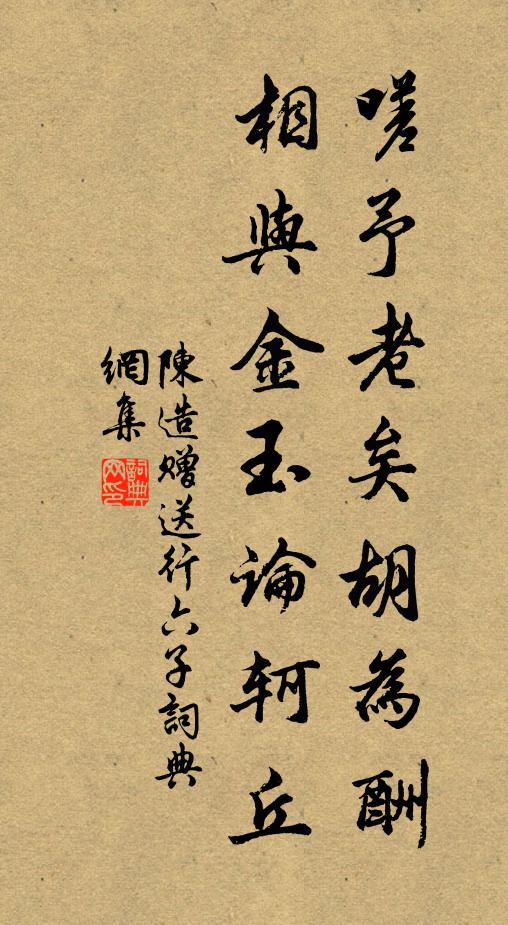 嗟予老矣胡為酬
相與金玉論軻丘
陳造贈送行六子詞典
網集
詞典網印